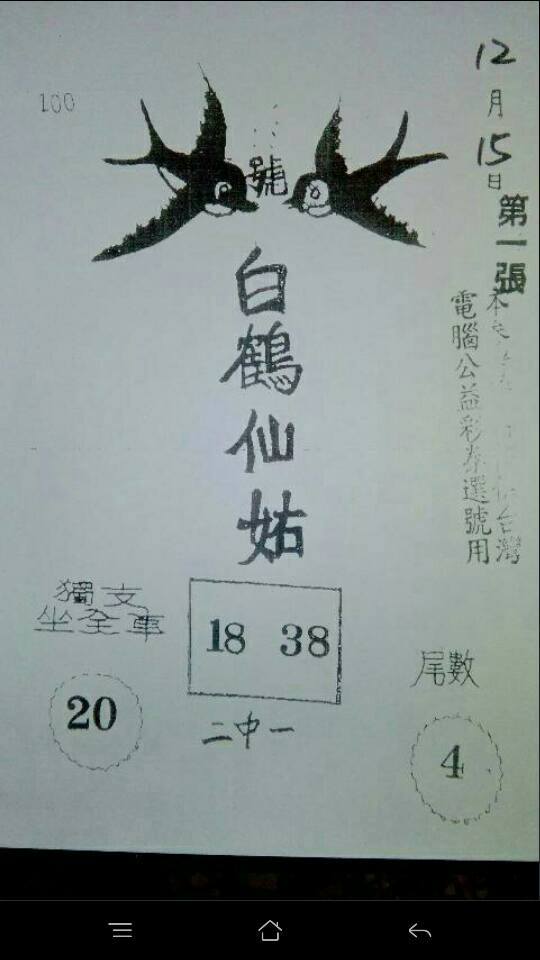 100
12月15日
第一張
號
白鶴仙姑
電腦公益彩券選號用
台灣
獨支
坐全車
20
18 38
二中一
尾數
4